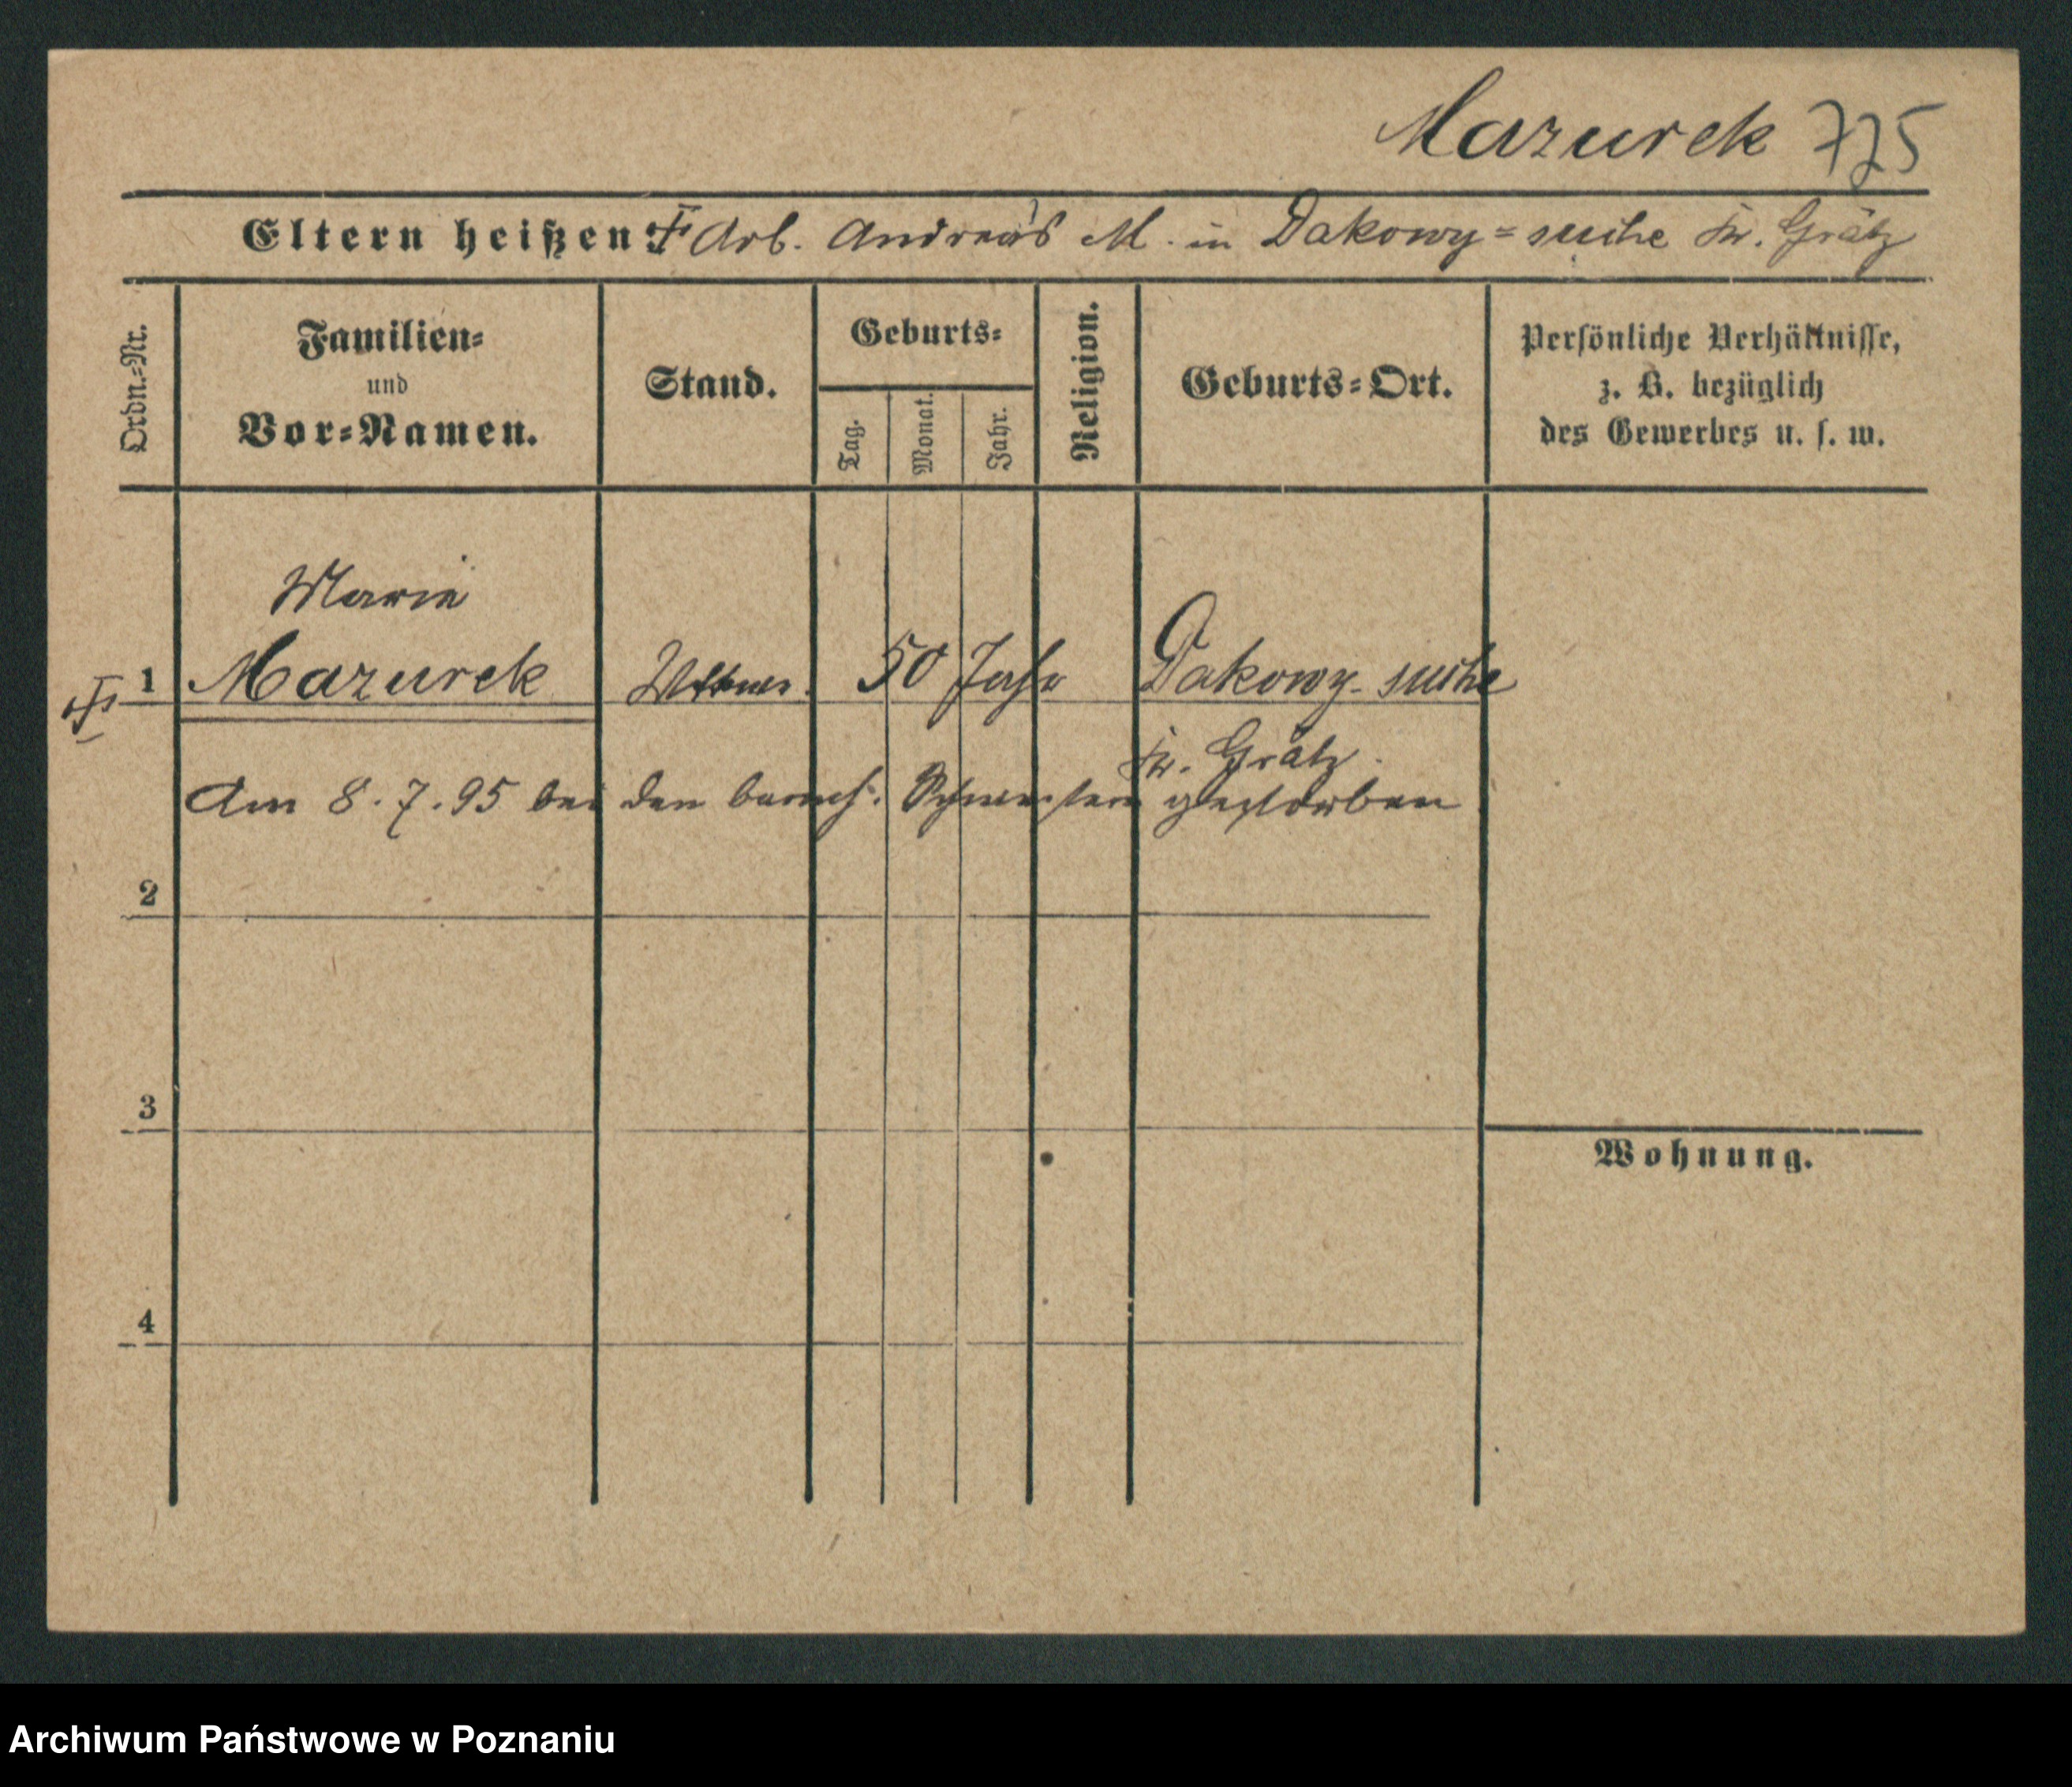 Mazurek 725
Eltern heißen: † Arb. Andreas M. in Dakowy=suche Kr. Grätz
Ordn.=Nr.
Familien=
und
Vor=Namen.
Stand.
Geburts=
Tag.
Monat.
Jahr.
Religion.
Geburts=Ort.
Persönliche Verhältnisse,
z. B. bezüglich
des Gewerbes u. s. w.
Marie
† 1 Mazurek 50 Jahr Dakowy-suche
Kr. Grätz.
Am 8.7.95 bei den barmh. Schwestern gestorben
2
3
Wohnung.
4
Archiwum Państwowe w Poznaniu